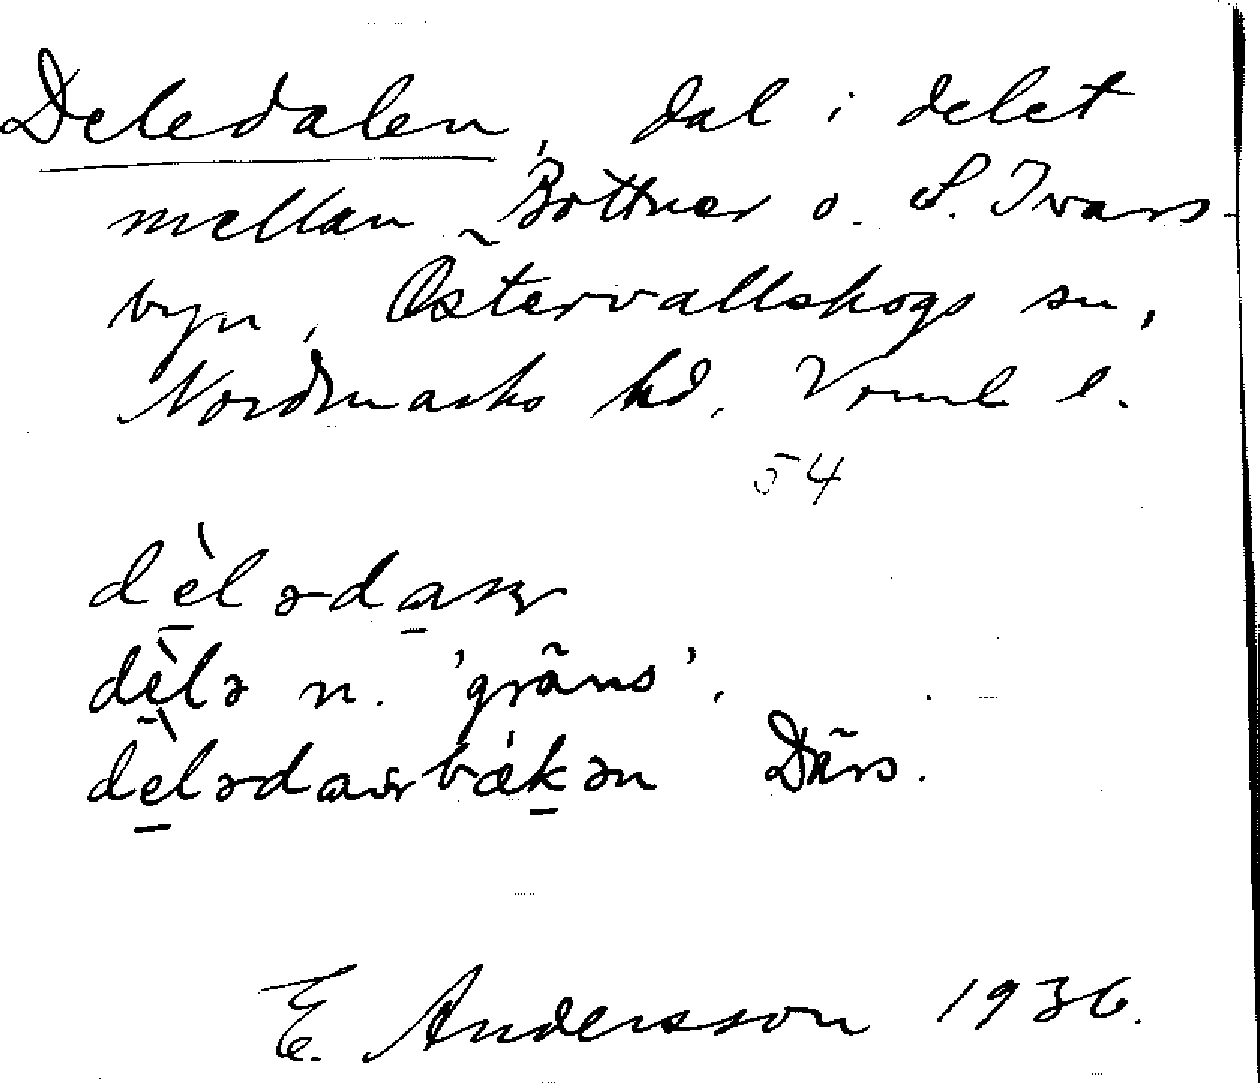 Deledalen, dal i delet
mellan Bottnar o. S. Ivars-
byn, Östervallskogs sn,
Nordmarks hd. Vrml l.
54
dèlədaɳ
dèlə n. 'gräns'.
Därs.
E. Andersson 1936.